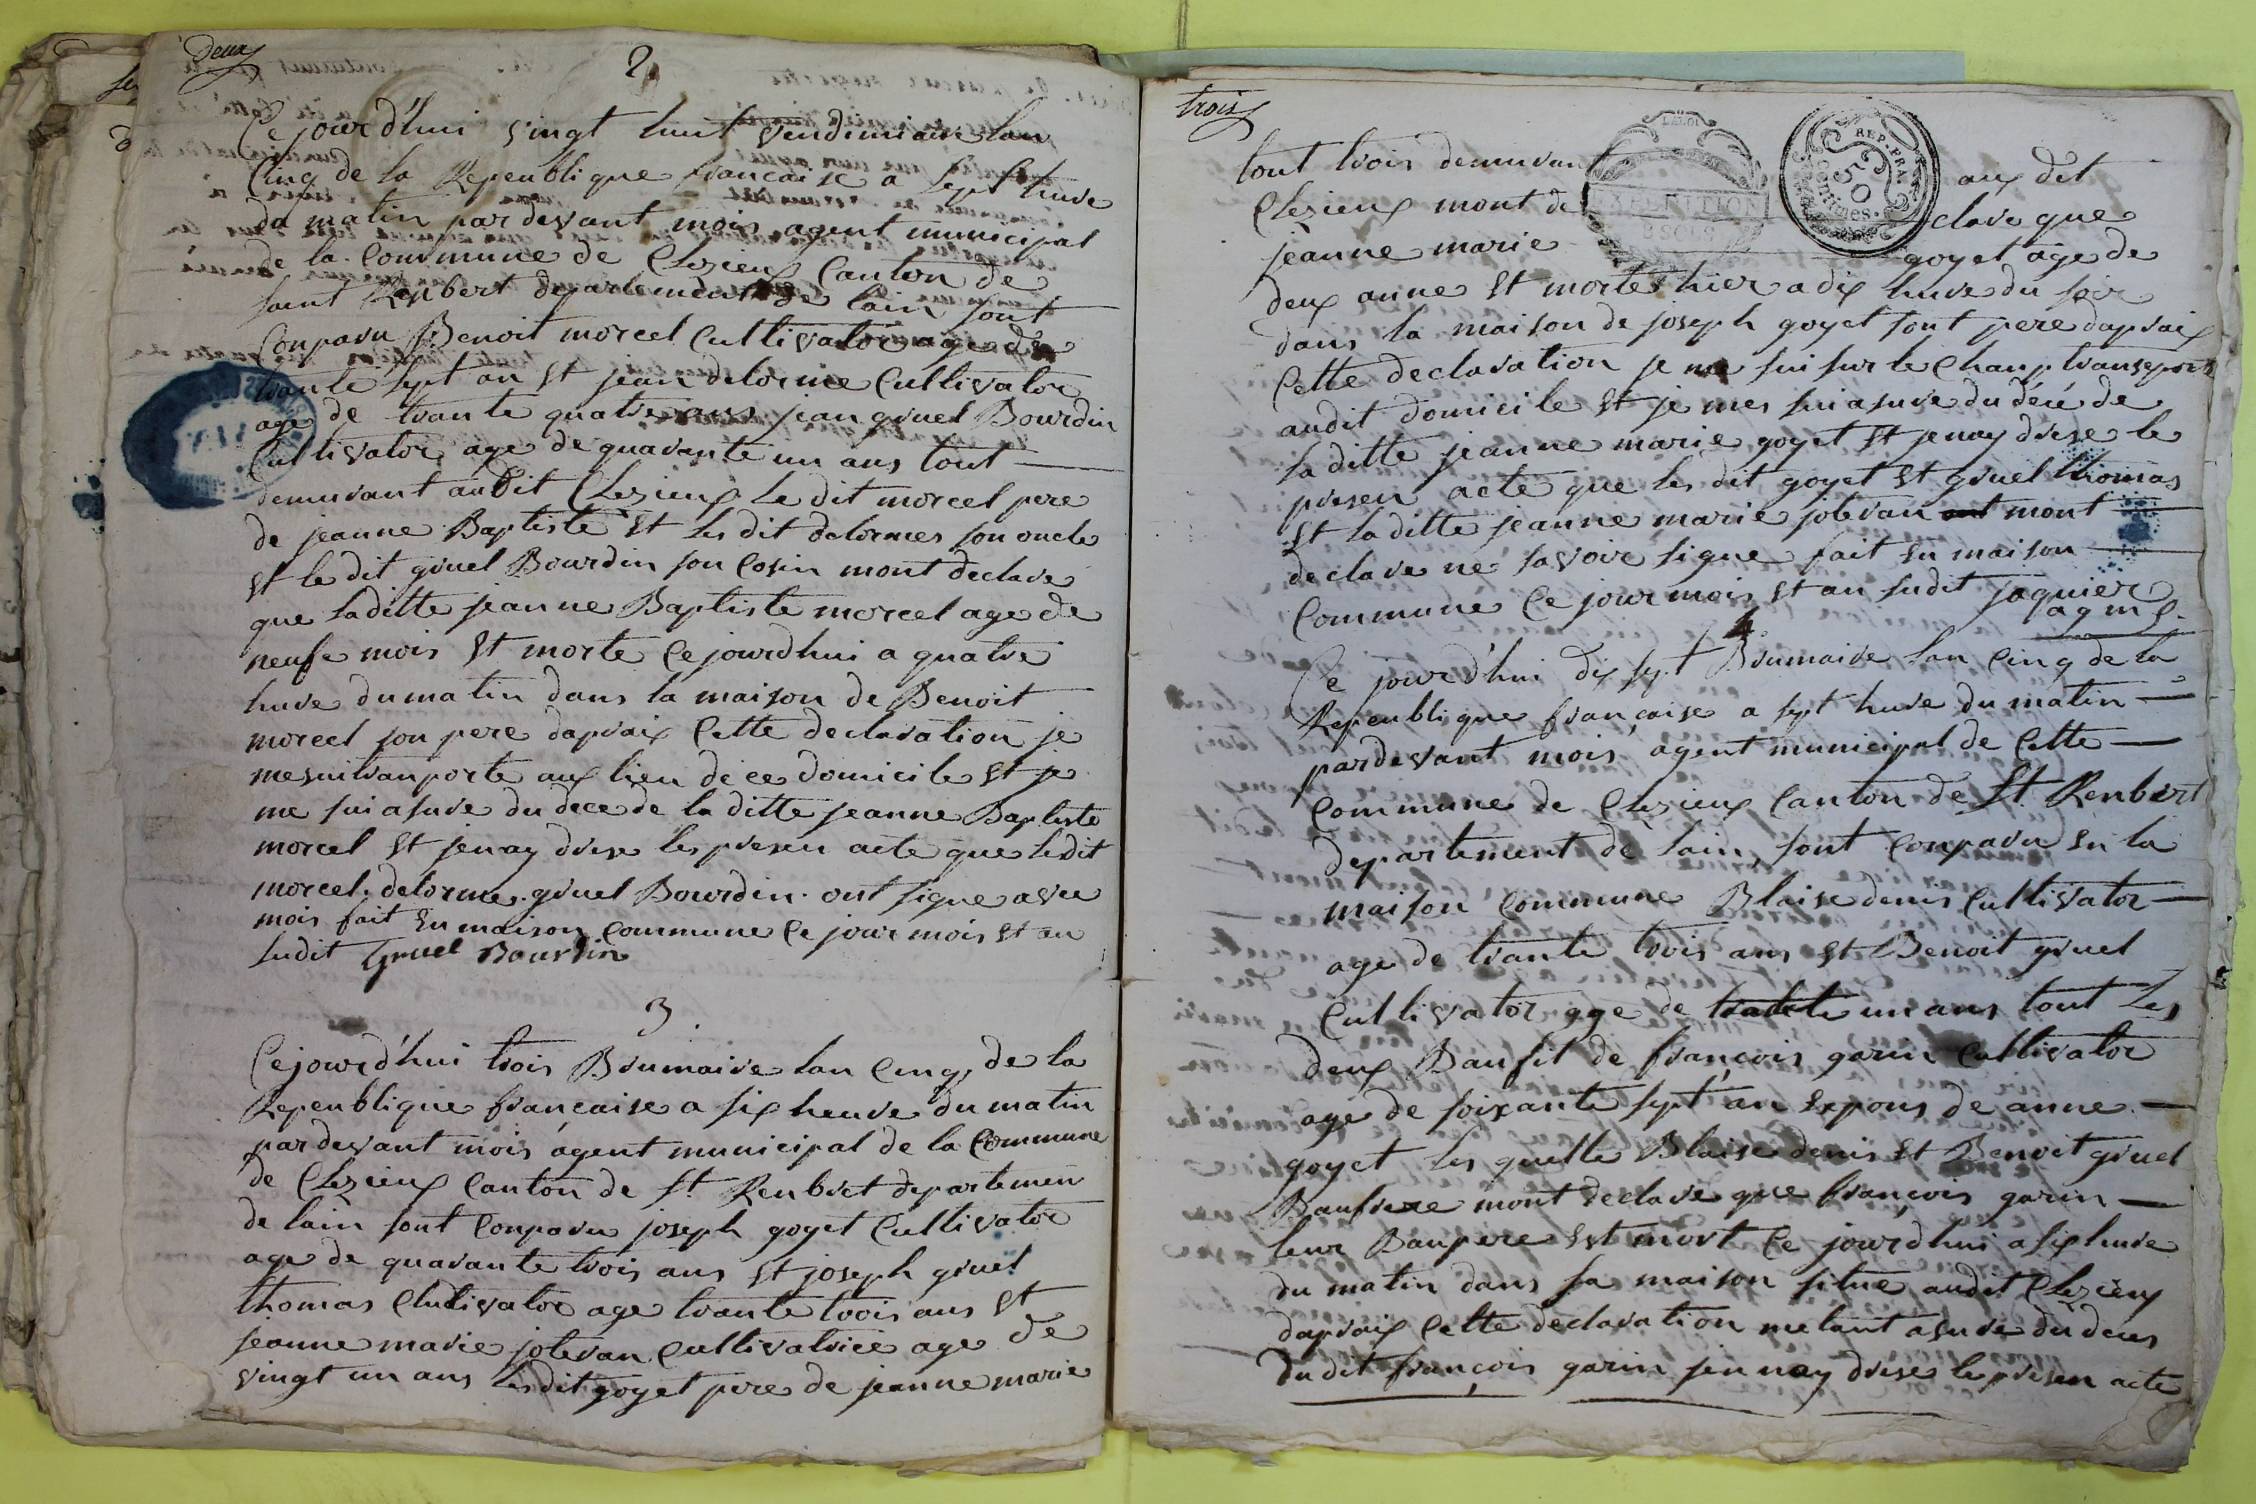 deux
2
Ce jourd'hui vingt huit vendimiaire lan
Cinq de la Repeublique francaise a sept huve
da matin par devant mois agent municipal
de la Commune de Clezieux Canton de
saint Renbert departement de lain sont
Conparu Benoit morcel Cultivator age de
trante sept an Et jean delorme Cultivator
age de trante quatre ans jean gruel Bourdin
Cultivator age de quarante un ans tout
demurant audit Clezieux Le dit morcel pere
de jeanne Baptiste Et les dit delormes son oncle
Et le dit gruel Bourdin son Cosin mont declare
que laditte jeanne Baptiste morcel age de
neufe mois Et morte Ce jourdhui a quatre
huve du matin dans la maison de Benoit
morcel son pere daprais Cette declaration je
mesuitranporte aux lieu de ce domicile Et je
me sui asure du dece de la ditte jeanne Baptiste
morcel Et jenay drese les presen acte que ledit
morcel. delorme. gruel Bourdin. ont signe avec
mois fait En maison Commune Ce jour mois Et an
sudit Gruel Bourdin
3
Cejourd'hui trois Brumaire lan Cinq de la
Repeublique française a six heuve du matin
par devant mois agent municipal de la Commune
de Clezieux Canton de St. Renbret departemen
de lain sont Conparu joseph goyet Cultivator
age de quarante trois ans Et joseph gruel
thomas Clutivator age trante trois ans Et
jeanne marie jolevan Cultivatrice age de
vingt un ans les dit goyet pere de jeanne marie
trois
tout trois demuvant aux dit
Clezieux mont de clare que
jeanne marie goyet age de
deux anne Et morte hier a dix huve du soir
dans la maison de joseph goyet sont pere daprais
Cette declaration je me sui sur le Chanp transeporte
audit domicile Et je mes sui asure du déce de
laditte jeanne marie goyet Et jenay drese le
presen acte que les dit goyet Et gruel thomas
Et laditte jeanne marie jolevan mont
declare ne savoir signe fait En maison
Commune Ce jour mois Et an sudit jaquier
agm p.
4
Ce jourd'hui dix sept Brumaire lan Cinq de la
Repeublique française a sept huve du matin
pardevant mois agent municipal de Cette
Commune de Clezieux Canton de St. Renbert
departement de lain, sont Conparu En la
maison Commune Blaise denis Cultivator
age de trante trois ans Et Benoit gruel
Cultivator age de un ans tout Les
deux Baufil de françois garin Cultivator
age de soixante sept an Expous de anne
goyet Les quelle Blaise denis Et Benoit gruel
Baufrere mont declare que françois garin
leur Baupere Est mort Ce jourd'hui a six huve
du matin dans sa maison situe audit Clezieux
daprais Cette declaration metant asure du deces
du dit françois garin jennay drese le presen acte
REP. FRA.
50
Centimes.